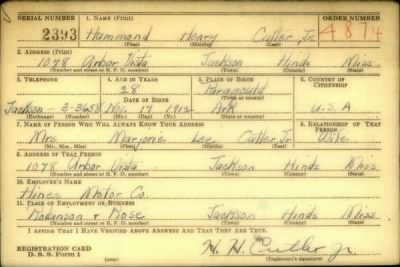 SERIAL NUMBER 1. NAME (Print) ORDER NUMBER
2393 Hammond Henry Culler, Jr. 4874
(First) (Middle) (Last)
2. ADDRESS (Print)
1078 Arbor Vista Jackson Hinds Miss.
(Number and street or R. F. D. number) (Town) (County) (State)
3. TELEPHONE 4. AGE IN YEARS 5. PLACE OF BIRTH 6. COUNTRY OF CITIZENSHIP
28 Paragould
DATE OF BIRTH (Town or county)
Jackson - 3-3658 Nov. 17 1912 Ark U.S.A
(Exchange) (Number) (Mo.) (Day) (Yr.) (State or country)
7. NAME OF PERSON WHO WILL ALWAYS KNOW YOUR ADDRESS 8. RELATIONSHIP OF THAT PERSON
Mrs. Marjorie Lee Culler Jr Wife
(Mr., Mrs., Miss) (First) (Middle) (Last)
9. ADDRESS OF THAT PERSON
1078 Arbor Vista Jackson Hinds Miss.
(Number and street or R. F. D. number) (Town) (County) (State)
10. EMPLOYER'S NAME
Hines Motor Co.
11. PLACE OF EMPLOYMENT OR BUSINESS
Robinson & Rose Jackson Hinds Miss
(Number and street or R. F. D. number) (Town) (County) (State)
I AFFIRM THAT I HAVE VERIFIED ABOVE ANSWERS AND THAT THEY ARE TRUE.
REGISTRATION CARD
D. S. S. Form 1 H. H. Culler Jr.
(Registrant's signature)